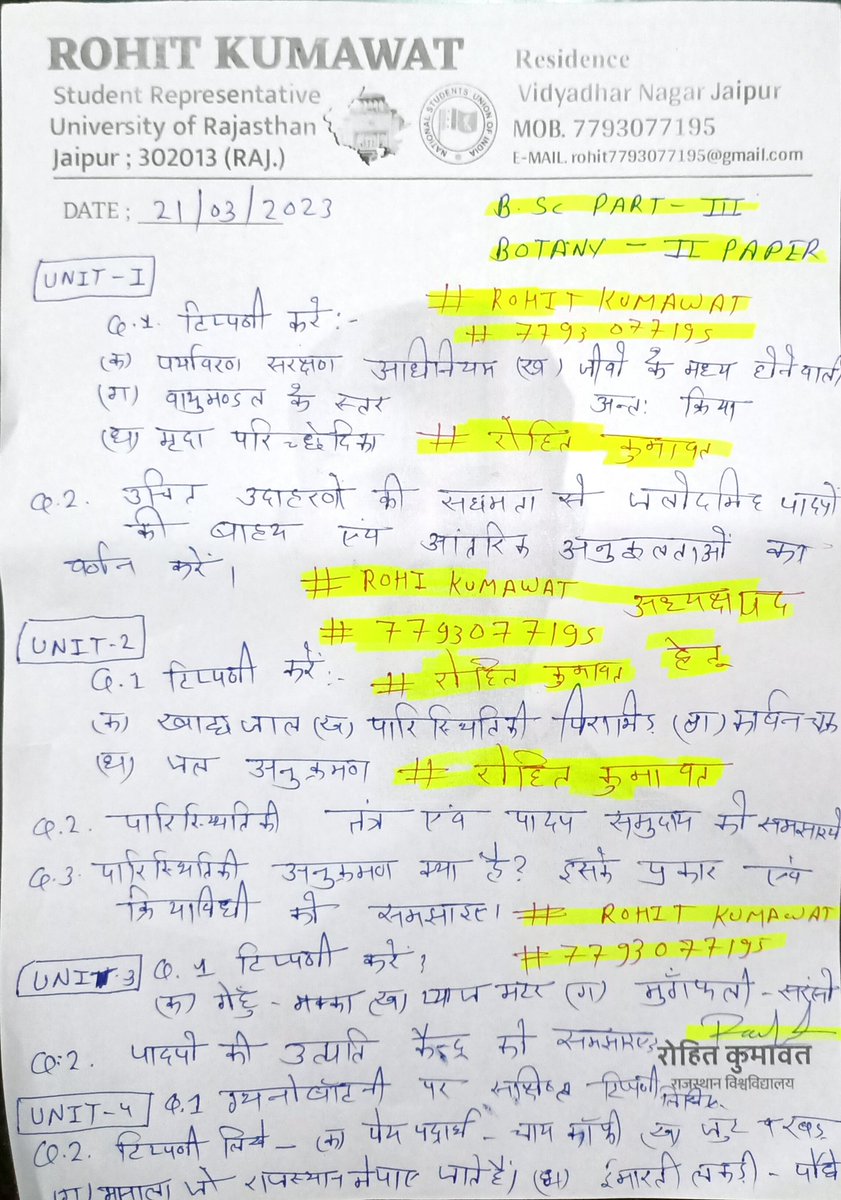 ROHIT KUMAWAT
Student Representative
University of Rajasthan
Jaipur ; 302013 (RAJ.)
NATIONAL STUDENTS UNION OF INDIA
Residence
Vidyadhar Nagar Jaipur
MOB. 7793077195
E-MAIL. rohit7793077195@gmail.com
DATE ; 21/03/2023
B.Sc PART-III
BOTANY - II PAPER
UNIT-I
# ROHIT KUMAWAT
# 7793077195
Q.1. टिप्पणी करें:-
(क) पर्यावरण संरक्षण अधिनियम (ख) जीवों के मध्य होने वाली
(ग) वायुमण्डल के स्तर अन्त: क्रिया
(घ) मृदा परिच्छेदिका # रोहित कुमावत
Q.2. उचित उदाहरणों की से पादपों
की बाह्य एवं आंतरिक अनुकूलताओं का
वर्णन करें।
# ROHI KUMAWAT अध्यक्ष पद
# 7793077195 हेतु
UNIT-2
Q.1 टिप्पणी करें:- # रोहित कुमावत
(क) खाद्य जाल (ख) पारिस्थितिकी पिरामिड कार्बन चक्र
(घ) जल अनुक्रमण # रोहित कुमावत
Q.2. पारिस्थितिकी तंत्र एवं पादप समुदाय को
Q.3. पारिस्थितिकी अनुक्रमण क्या है? इसके प्रकार एवं
क्रियाविधी को समझाइए। # ROHIT KUMAWAT
# 7793077195
UNIT-3 Q.1 टिप्पणी करें?
(क) गेहुँ - मक्का (ख) प्याज मटर (ग) मुँगफली - सरसो
Q:2. पादपो की उत्पति को
रोहित कुमावत
राजस्थान विश्वविद्यालय
UNIT-4 Q.1 पर टिप्पणी लिखिए
Q.2. टिप्पणी लिखे - (क) पेय पदार्थ - चाय कॉफी (ख) जुट व रबड़
(ग) मसाला जो राजस्थान मे पाए जाते है। (घ) ईमारती लकड़ी - पौधे